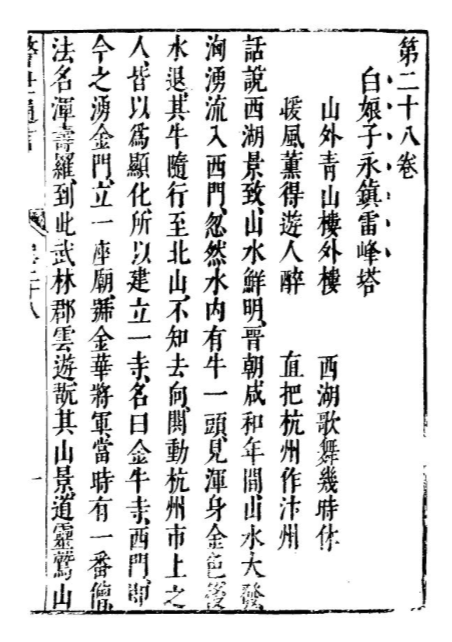 第二十八卷
白娘子永鎮雷峰塔
山外青山樓外樓 西湖歌舞幾時休
暖風薰得遊人醉 直把杭州作汴州
話說西湖景致、山水鮮明、晉朝咸和年間、山水大發、
洶湧流入西門、忽然水內有牛一頭、見渾身金色、後
水退、其牛隨行至北山、不知去向、鬨動杭州市上之
人、皆以爲顯化、所以建立一寺、名曰金牛寺、西門、即
今之湧金門、立一座廟、號金華將軍、當時有一番僧、
法名渾壽羅、到此武林郡雲遊、翫其山景、道靈鷲山
警世通言 卷二十八 一